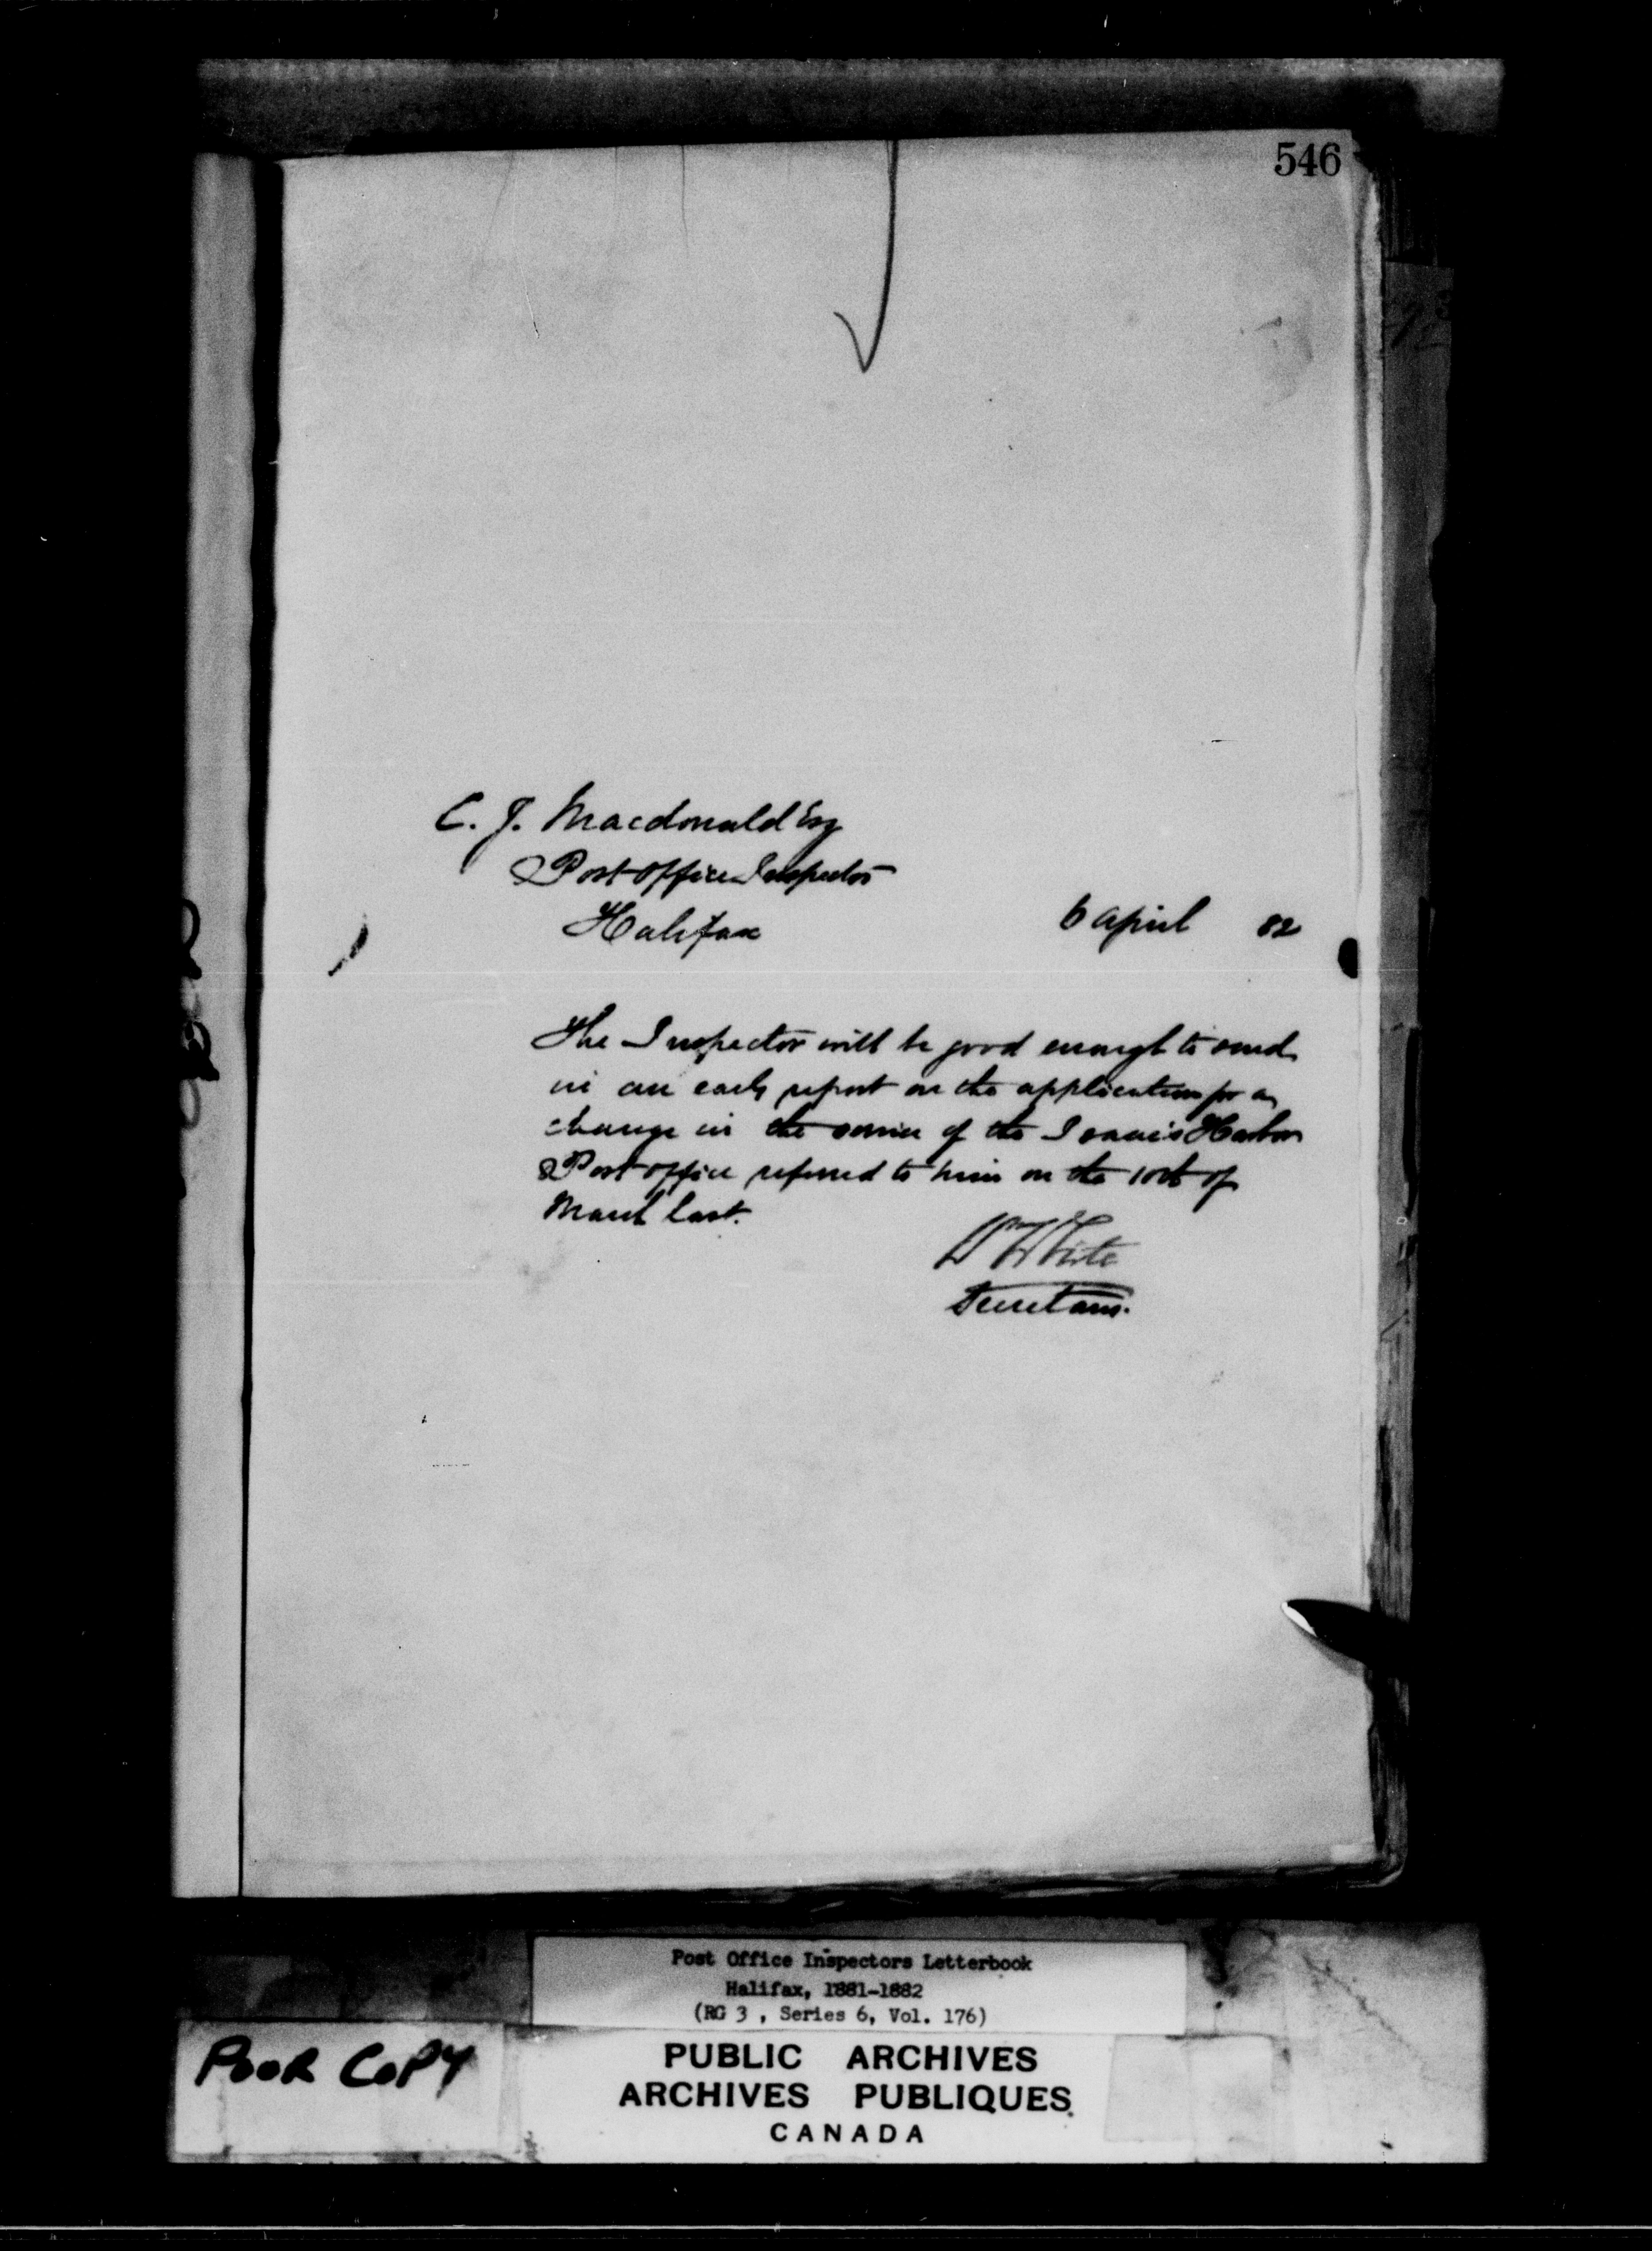 546
C. J. Macdonald Esq
Post Office Inspector
Halifax
6 April 82
The Inspector will be good enough to send
in an early report on the application for a
change in the service of the Isaac's Harbor
Post office referred to him on the 10th of
March last.
W White
Secretary.
Post Office Inspectors Letterbook
Halifax, 1881-1882
(RG 3 , Series 6, Vol. 176)
POOR COPY
PUBLIC ARCHIVES
ARCHIVES PUBLIQUES
CANADA